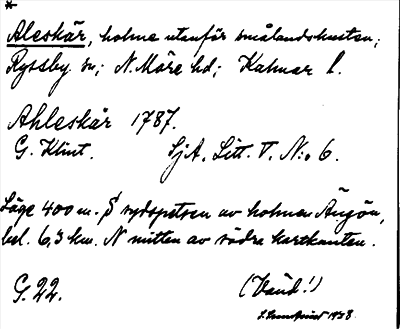 *
Aleskär, holme utanför smålandskusten;
Ryssby sn; N. Möre hd; Kalmar l.
Ahleskär 1787.
G. Klint. SjA. Litt. V. N:o 6.
Läge 400 m. S sydspetsen av holmen Ängön,
bel. 6,3 km. N mitten av södra kartkanten.
G. 22. (Vänd!)
1938